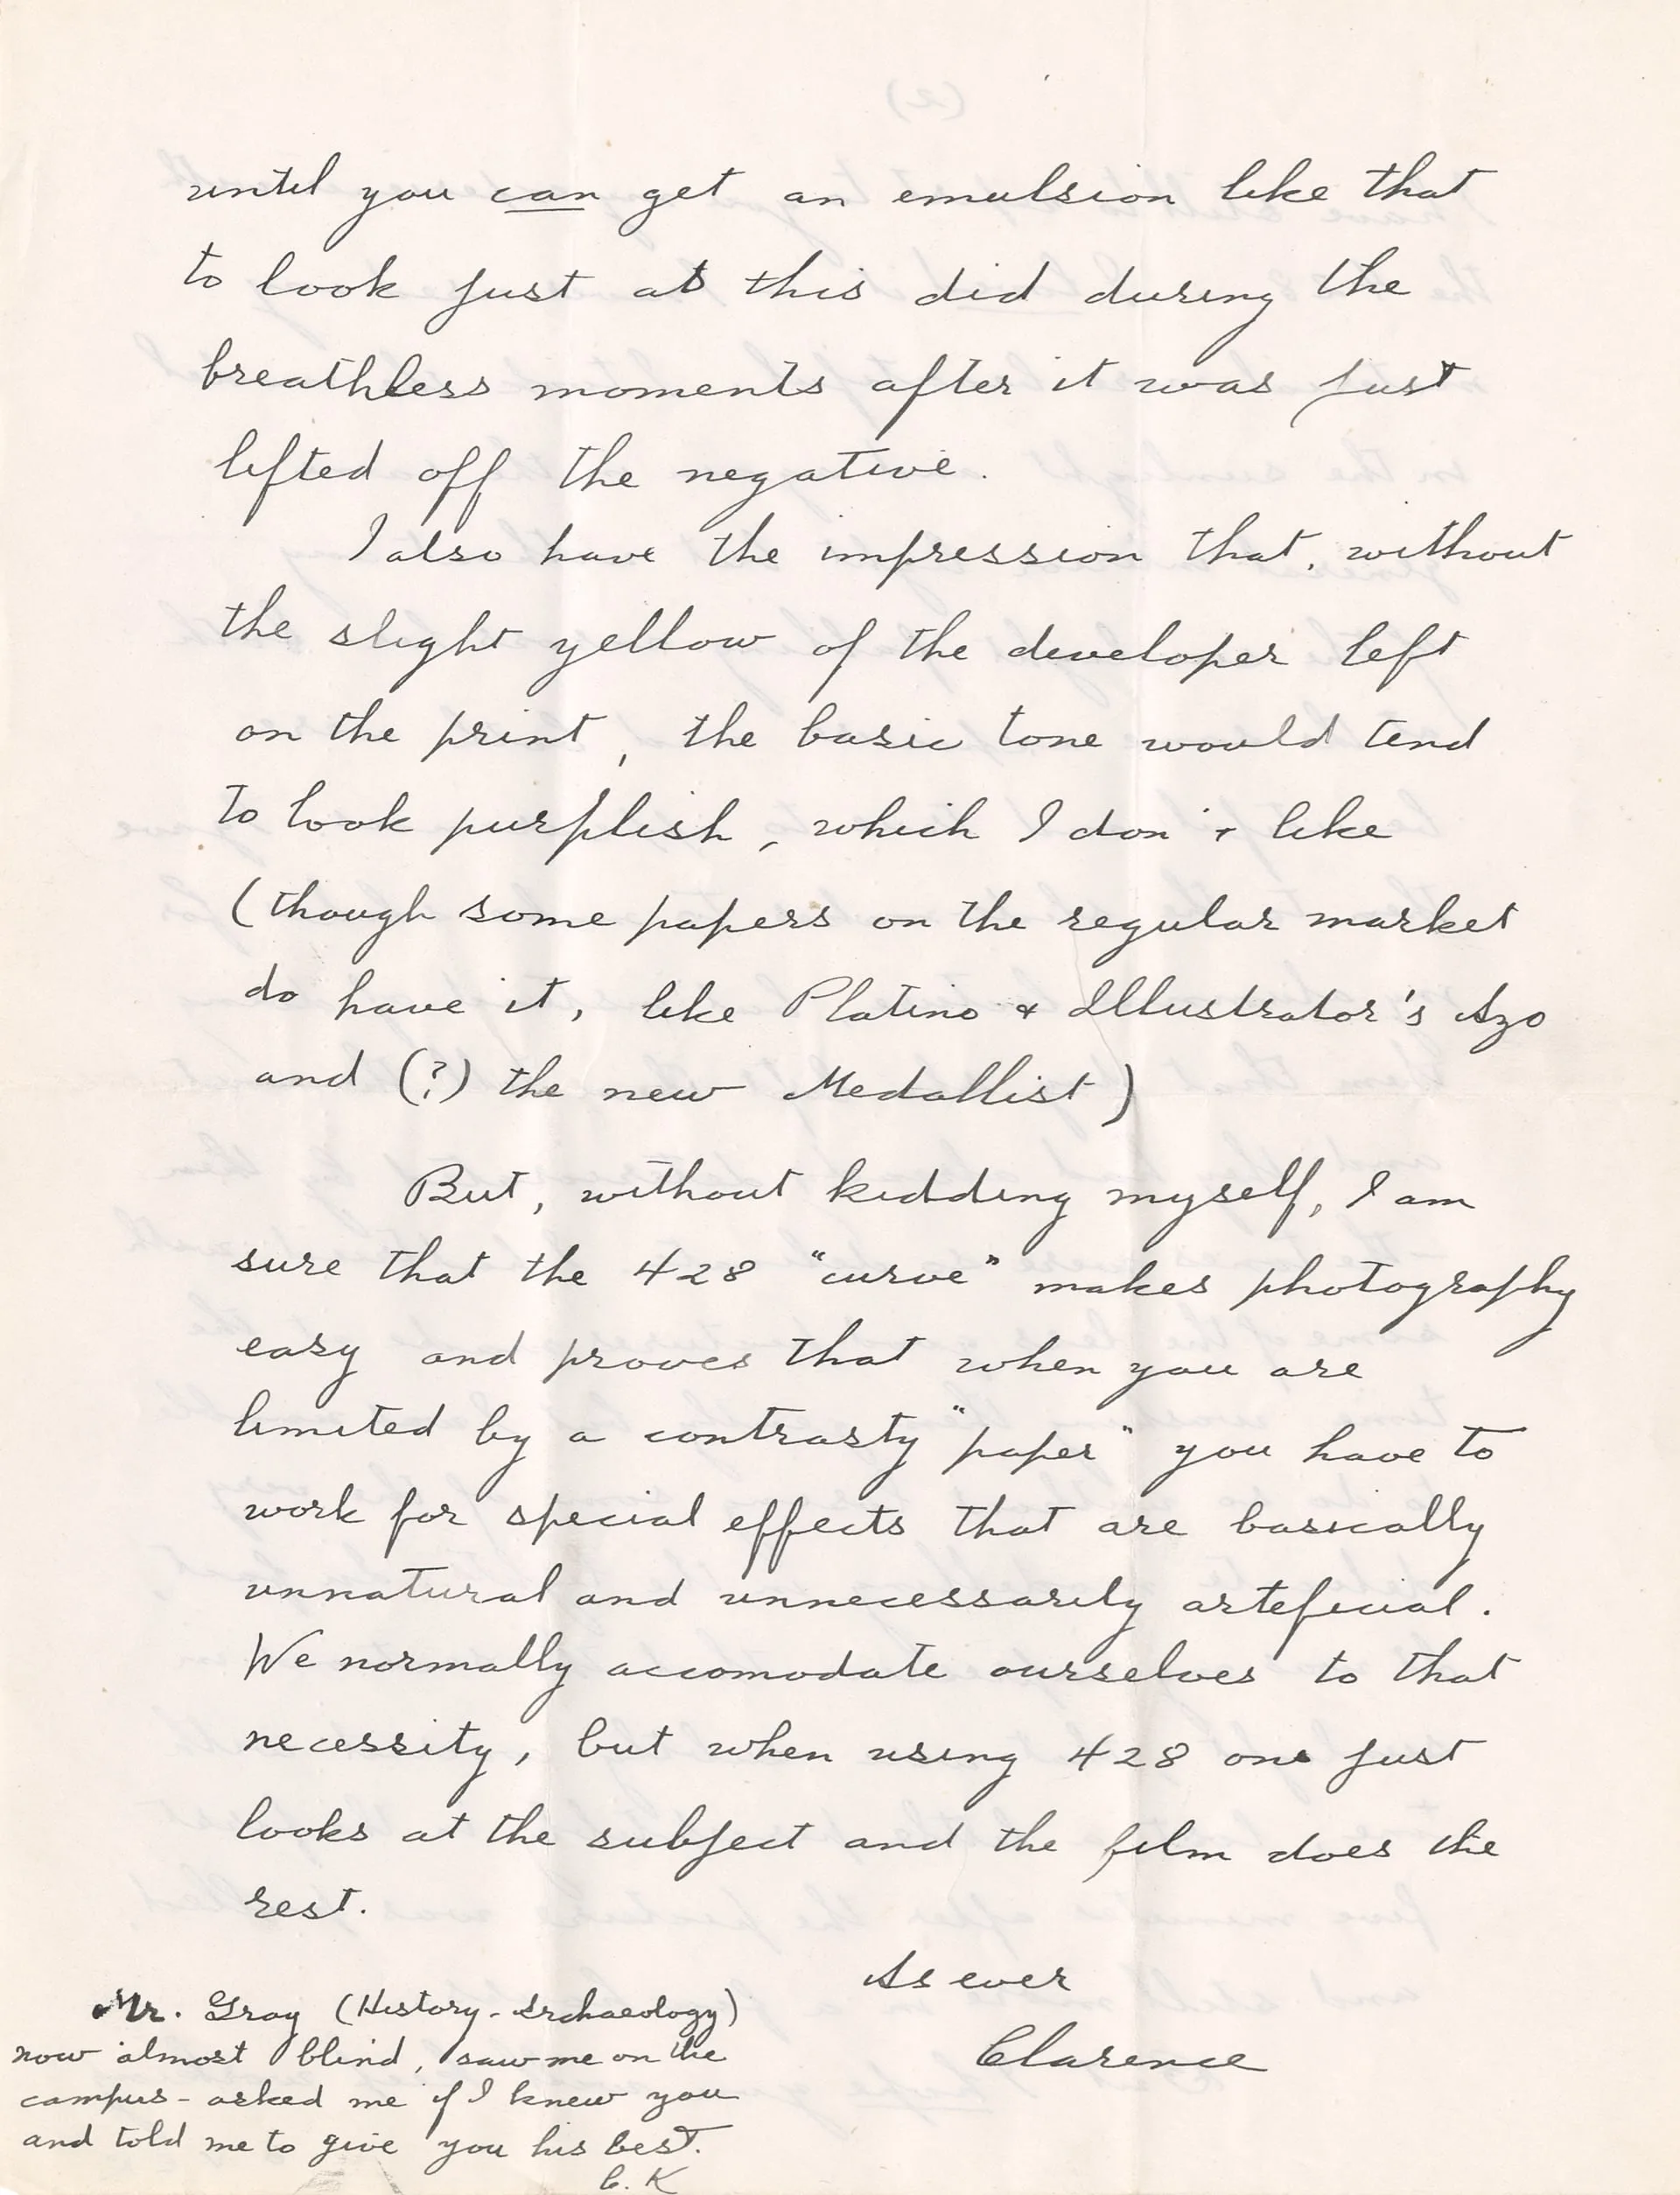 until you can get an emulsion like that
to look just as this did during the
breathless moments after it was just
lifted off the negative.
I also have the impression that, without
the slight yellow of the developer left
on the print, the basic tone would tend
to look purplish, which I don't like
(though some papers on the regular market
do have it, like Platino & Illustrator's Azo
and (?) the new Medallist)
But, without kidding myself, I am
sure that the 428 "curve" makes photography
easy and proves that when you are
limited by a contrasty "paper" you have to
work for special effects that are basically
unnatural and unnecessarily arteficial.
We normally accomodate ourselves to that
necessity, but when using 428 one just
looks at the subject and the film does the
rest.
As ever
Clarence
Mr. Gray (History-Archaeology)
now almost blind, saw me on the
campus - asked me if I knew you
and told me to give you his best.
C. K